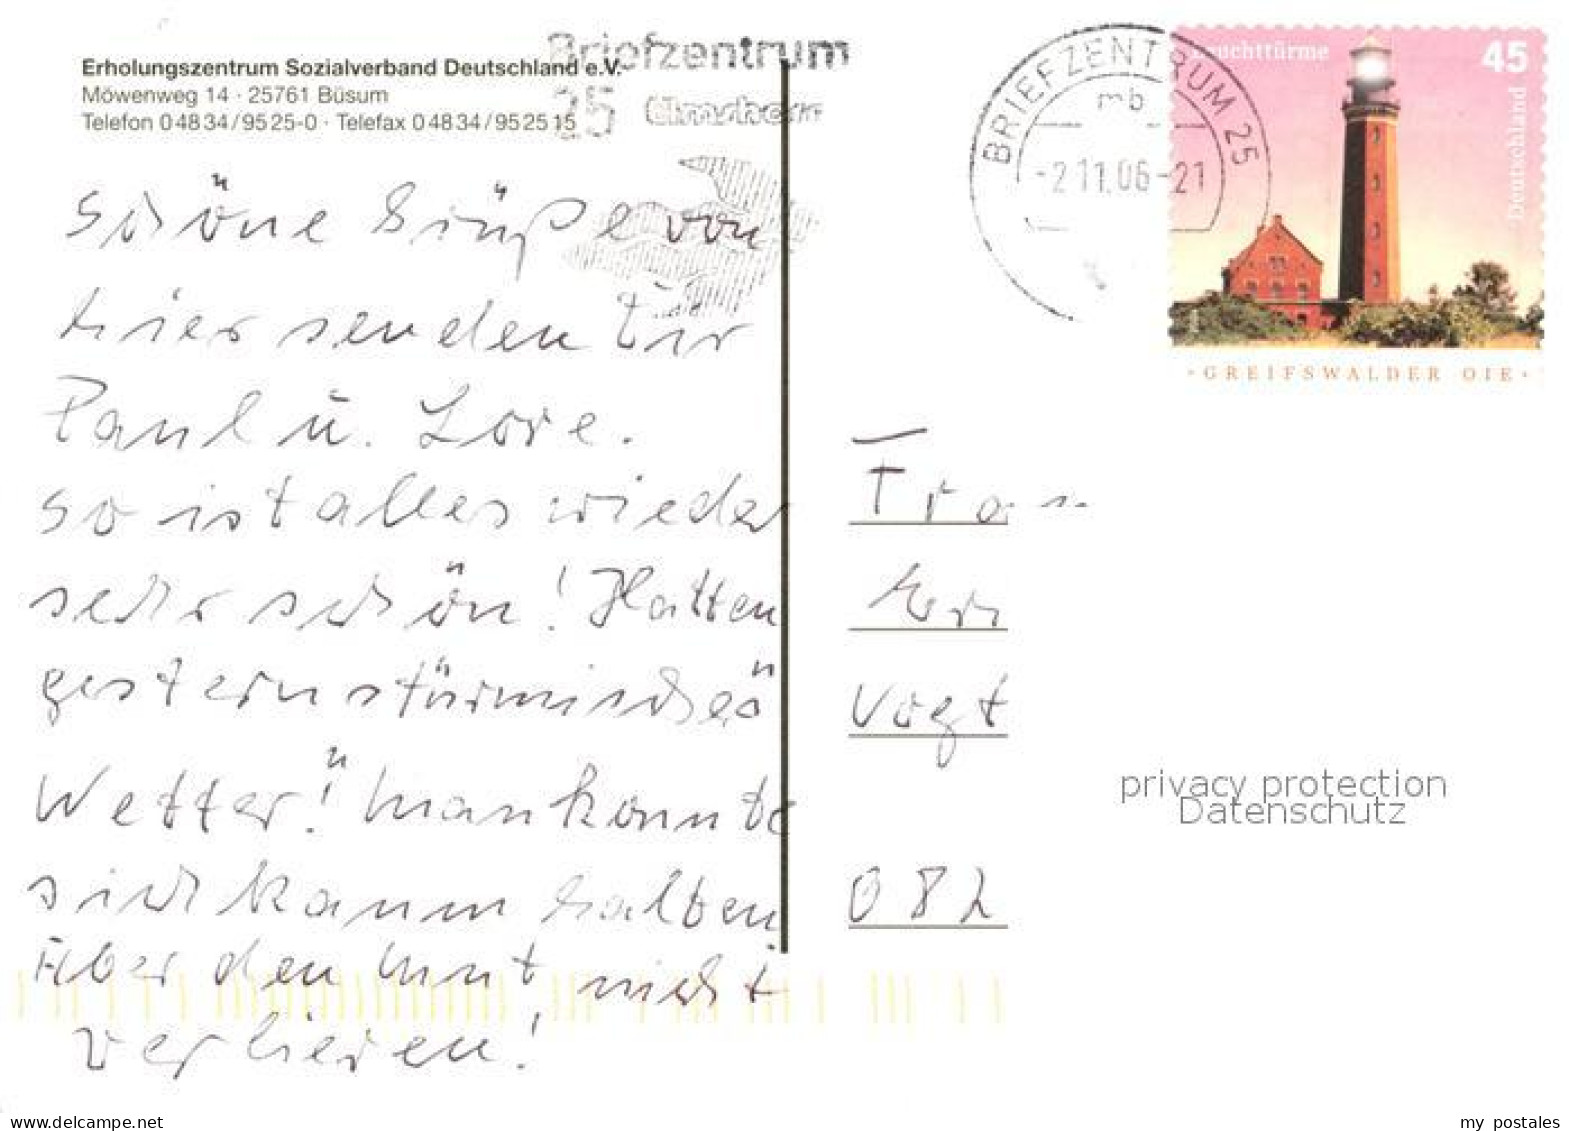 Erholungszentrum Sozialverband Deutschland e.V.
Möwenweg 14 · 25761 Büsum
Telefon 0 48 34 / 95 25-0 · Telefax 0 48 34 / 95 25 15
Briefzentrum
25 Elmshorn
BRIEFZENTRUM 25
mb
-2.11.06-21
Leuchttürme 45
Deutschland
·GREIFSWALDER OIE·
Schöne Grüße von
hier senden Dir
Paul u. Lore.
So ist alles wieder
sehr schön! Hatten
gestern stürmisches
Wetter! Man konnte
sich kaum halten
Aber den Mut nicht
verlieren!
Frau
Vogt
082
privacy protection
Datenschutz
www.delcampe.net
my_postales